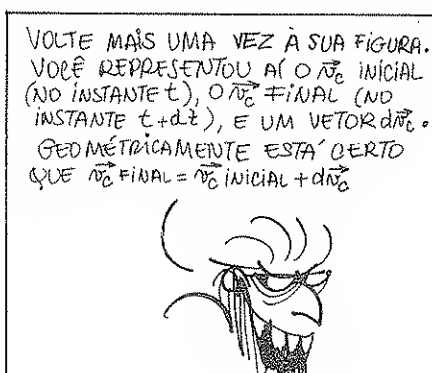 VOLTE MAIS UMA VEZ À SUA FIGURA.
VOCÊ REPRESENTOU AÍ O v⃗c INICIAL
(NO INSTANTE t), O v⃗c FINAL (NO
INSTANTE t+dt), E UM VETOR dv⃗c.
GEOMÉTRICAMENTE ESTÁ CERTO
QUE v⃗c FINAL = v⃗c INICIAL + dv⃗c